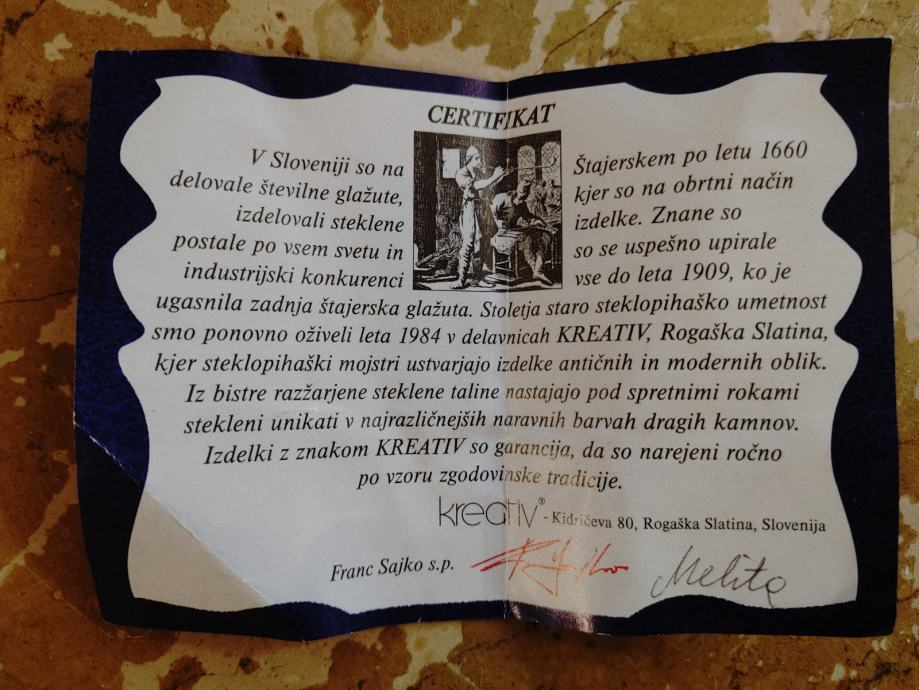 CERTIFIKAT
V Sloveniji so na Štajerskem po letu 1660
delovale številne glažute, kjer so na obrtni način
izdelovali steklene izdelke. Znane so
postale po vsem svetu in so se uspešno upirale
industrijski konkurenci vse do leta 1909, ko je
ugasnila zadnja štajerska glažuta. Stoletja staro steklopihaško umetnost
smo ponovno oživeli leta 1984 v delavnicah KREATIV, Rogaška Slatina,
kjer steklopihaški mojstri ustvarjajo izdelke antičnih in modernih oblik.
Iz bistre razžarjene steklene taline nastajajo pod spretnimi rokami
stekleni unikati v najrazličnejših naravnih barvah dragih kamnov.
Izdelki z znakom KREATIV so garancija, da so narejeni ročno
po vzoru zgodovinske tradicije.
kreativ® - Kidričeva 80, Rogaška Slatina, Slovenija
Franc Sajko s.p. Melita